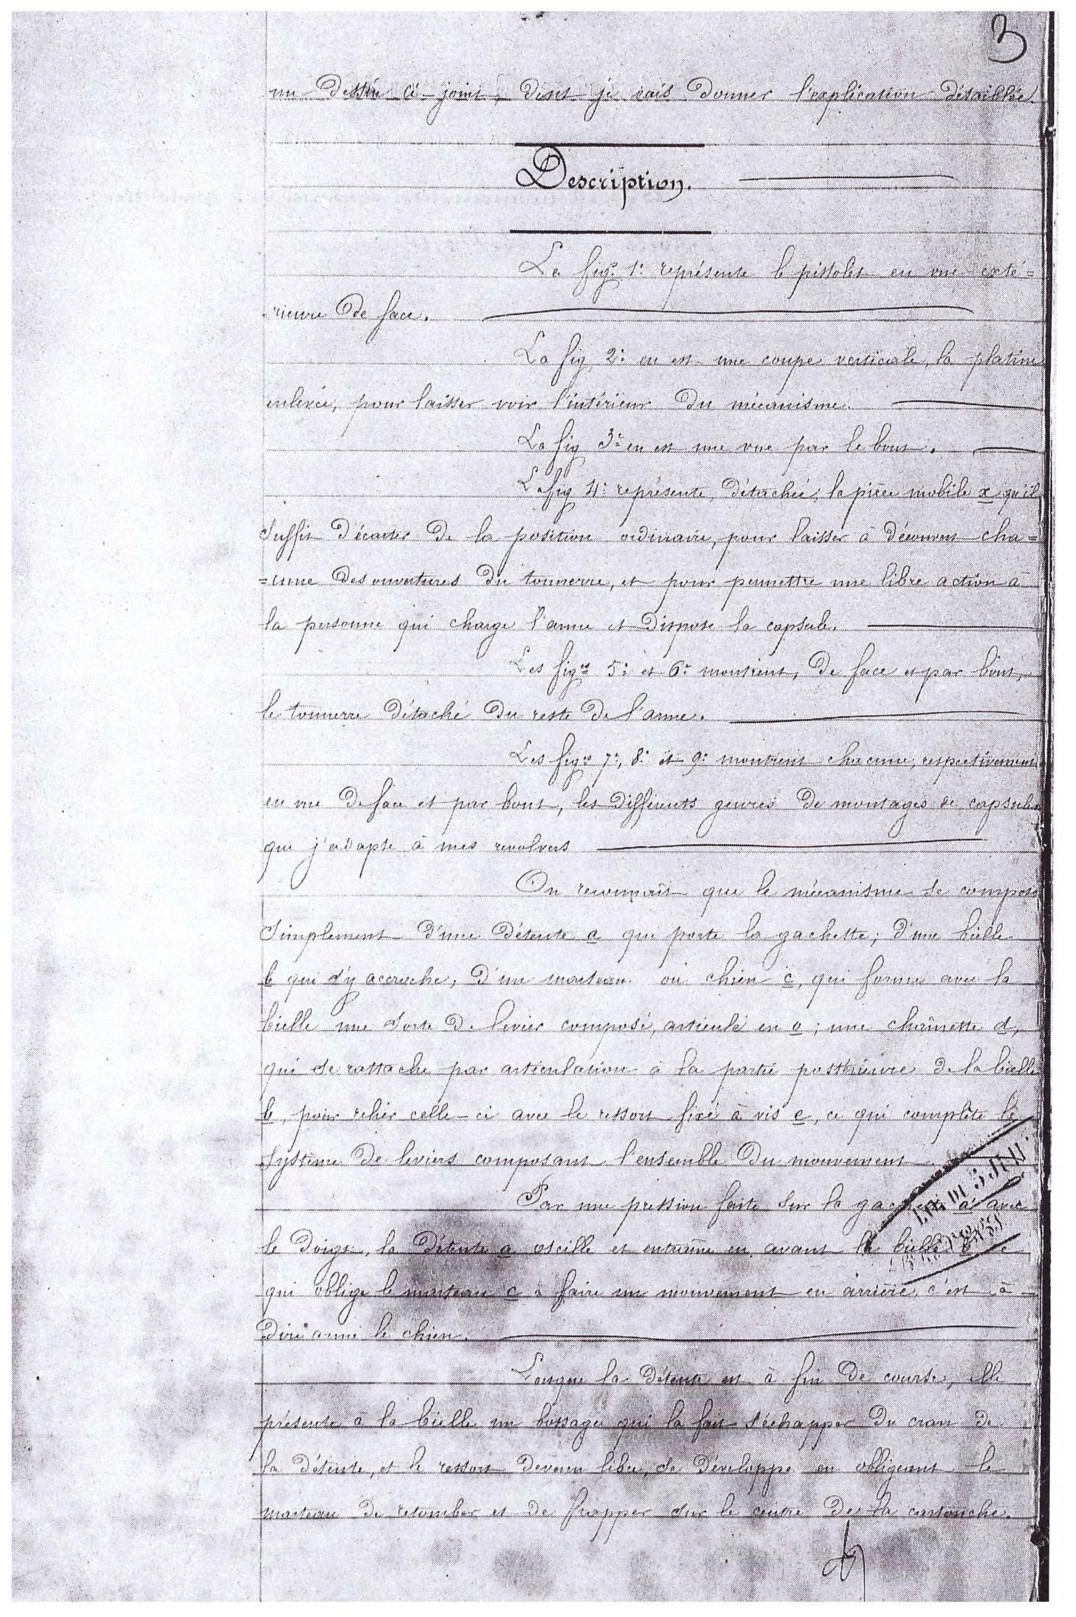 3
un dessin ci-joint, dont je vais donner l'explication détaillée.
Description.
La fig. 1e représente le pistolet en vue exté=
rieure de face.
La fig 2e en est une coupe verticale, la platine
enlevée, pour laisser voir l'intérieur du mécanisme.
La fig 3e en est une vue par le bout.
La fig 4e représente, détachée, la pièce mobile x qu'il
suffit d'écarter de la position ordinaire, pour laisser à découvert cha=
=cune des ouvertures du tonnerre, et pour permettre une libre action à
la personne qui charge l'arme et dispose la capsule.
Les figes 5e et 6e montrent, de face et par bout,
le tonnerre détaché du reste de l'arme.
Les figes 7e, 8e et 9e montrent chacune, respectivement
en vue de face et par bout, les différents genres de montages de capsules
que j'adapte à mes revolvers
On reconnaît que le mécanisme se compose
simplement d'une détente a qui porte la gachette; d'une bielle
b qui s'y accroche, d'un marteau ou chien c, qui forme avec la
bielle une sorte de levier composé, articulé en o; une chaînette d,
qui se rattache par articulation à la partie postérieure de la bielle
b, pour relier celle-ci avec le ressort fixé à vis e, ce qui complète le
système de leviers composant l'ensemble du mouvement
Par une pression faite sur la a avec
le doigt, la détente a oscille et entraîne en avant la bielle b ce
qui oblige le marteau c à faire un mouvement en arrière, c'est à
dire arme le chien.
Lorsque la détente est à fin de course, elle
présente à la bielle un bossage qui la fait s'échapper du cran de
la détente, et le ressort devenu libre, se développe en obligeant le
marteau de retomber et de frapper sur le centre de la cartouche.